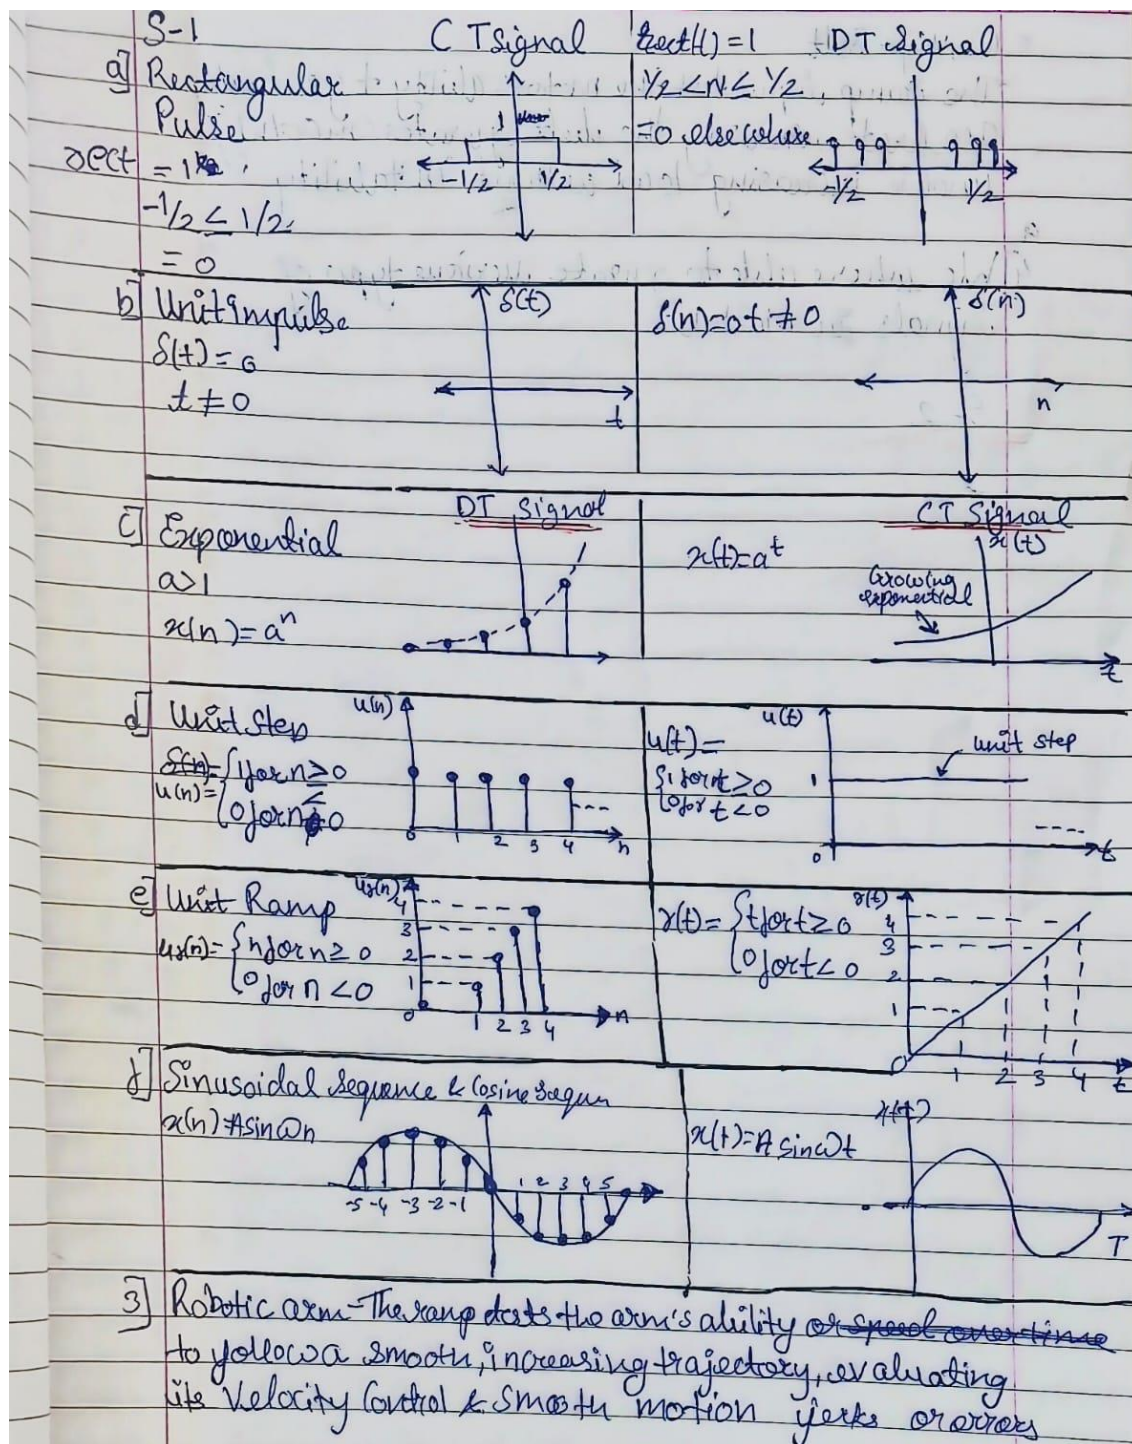 S-1 CT Signal rect(t) = 1 DT Signal
a] Rectangular
Pulse
rect = 1
-1/2 ≤ 1/2
= 0
1
-1/2 1/2
1/2 < N ≤ 1/2
= 0 elsewhere
-1/2 1/2
b] Unit impulse
δ(t) = 0
t ≠ 0
δ(t)
t
δ(n) = 0 t ≠ 0
δ(n)
n
DT Signal CT Signal
c] Exponential
a>1
x(n) = aⁿ
x(t) = aᵗ
x(t)
Growing
exponential
t
d] Unit Step
u(n) = {1 for n ≥ 0
{0 for n < 0
u(n)
0 1 2 3 4 n
u(t) =
{1 for t ≥ 0
{0 for t < 0
u(t)
unit step
1
0 t
e] Unit Ramp
ur(n) = {n for n ≥ 0
{0 for n < 0
ur(n)
4
3
2
1
0 1 2 3 4 n
r(t) = {t for t ≥ 0
{0 for t < 0
r(t)
4
3
2
1
0 1 2 3 4 t
f] Sinusoidal sequence & Cosine sequn
x(n) = A sin ωn
-5 -4 -3 -2 -1 1 2 3 4 5
x(t) = A sin ωt
x(t)
T
3] Robotic arm - The ramp tests the arm's ability or speed over time
to follow a smooth, increasing trajectory, evaluating
its Velocity Control & Smooth motion jerks or errors